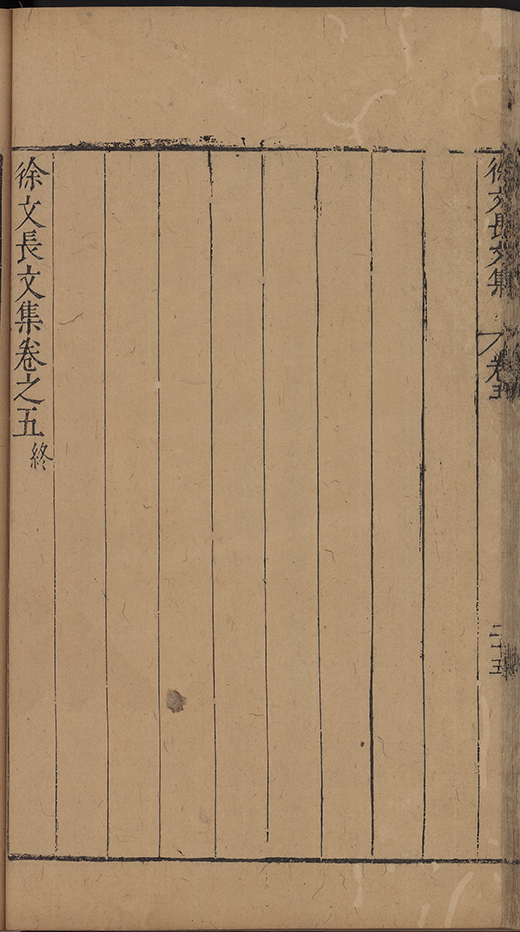 徐文長文集
卷五
二十五
徐文長文集卷之五終